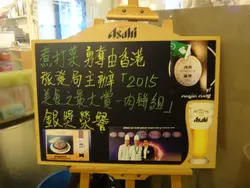 Asahi
煮打菜 勇奪由香港
旅發局主辦「2015
美食之最大賞-肉餅組」
銀獎榮譽
Asahi